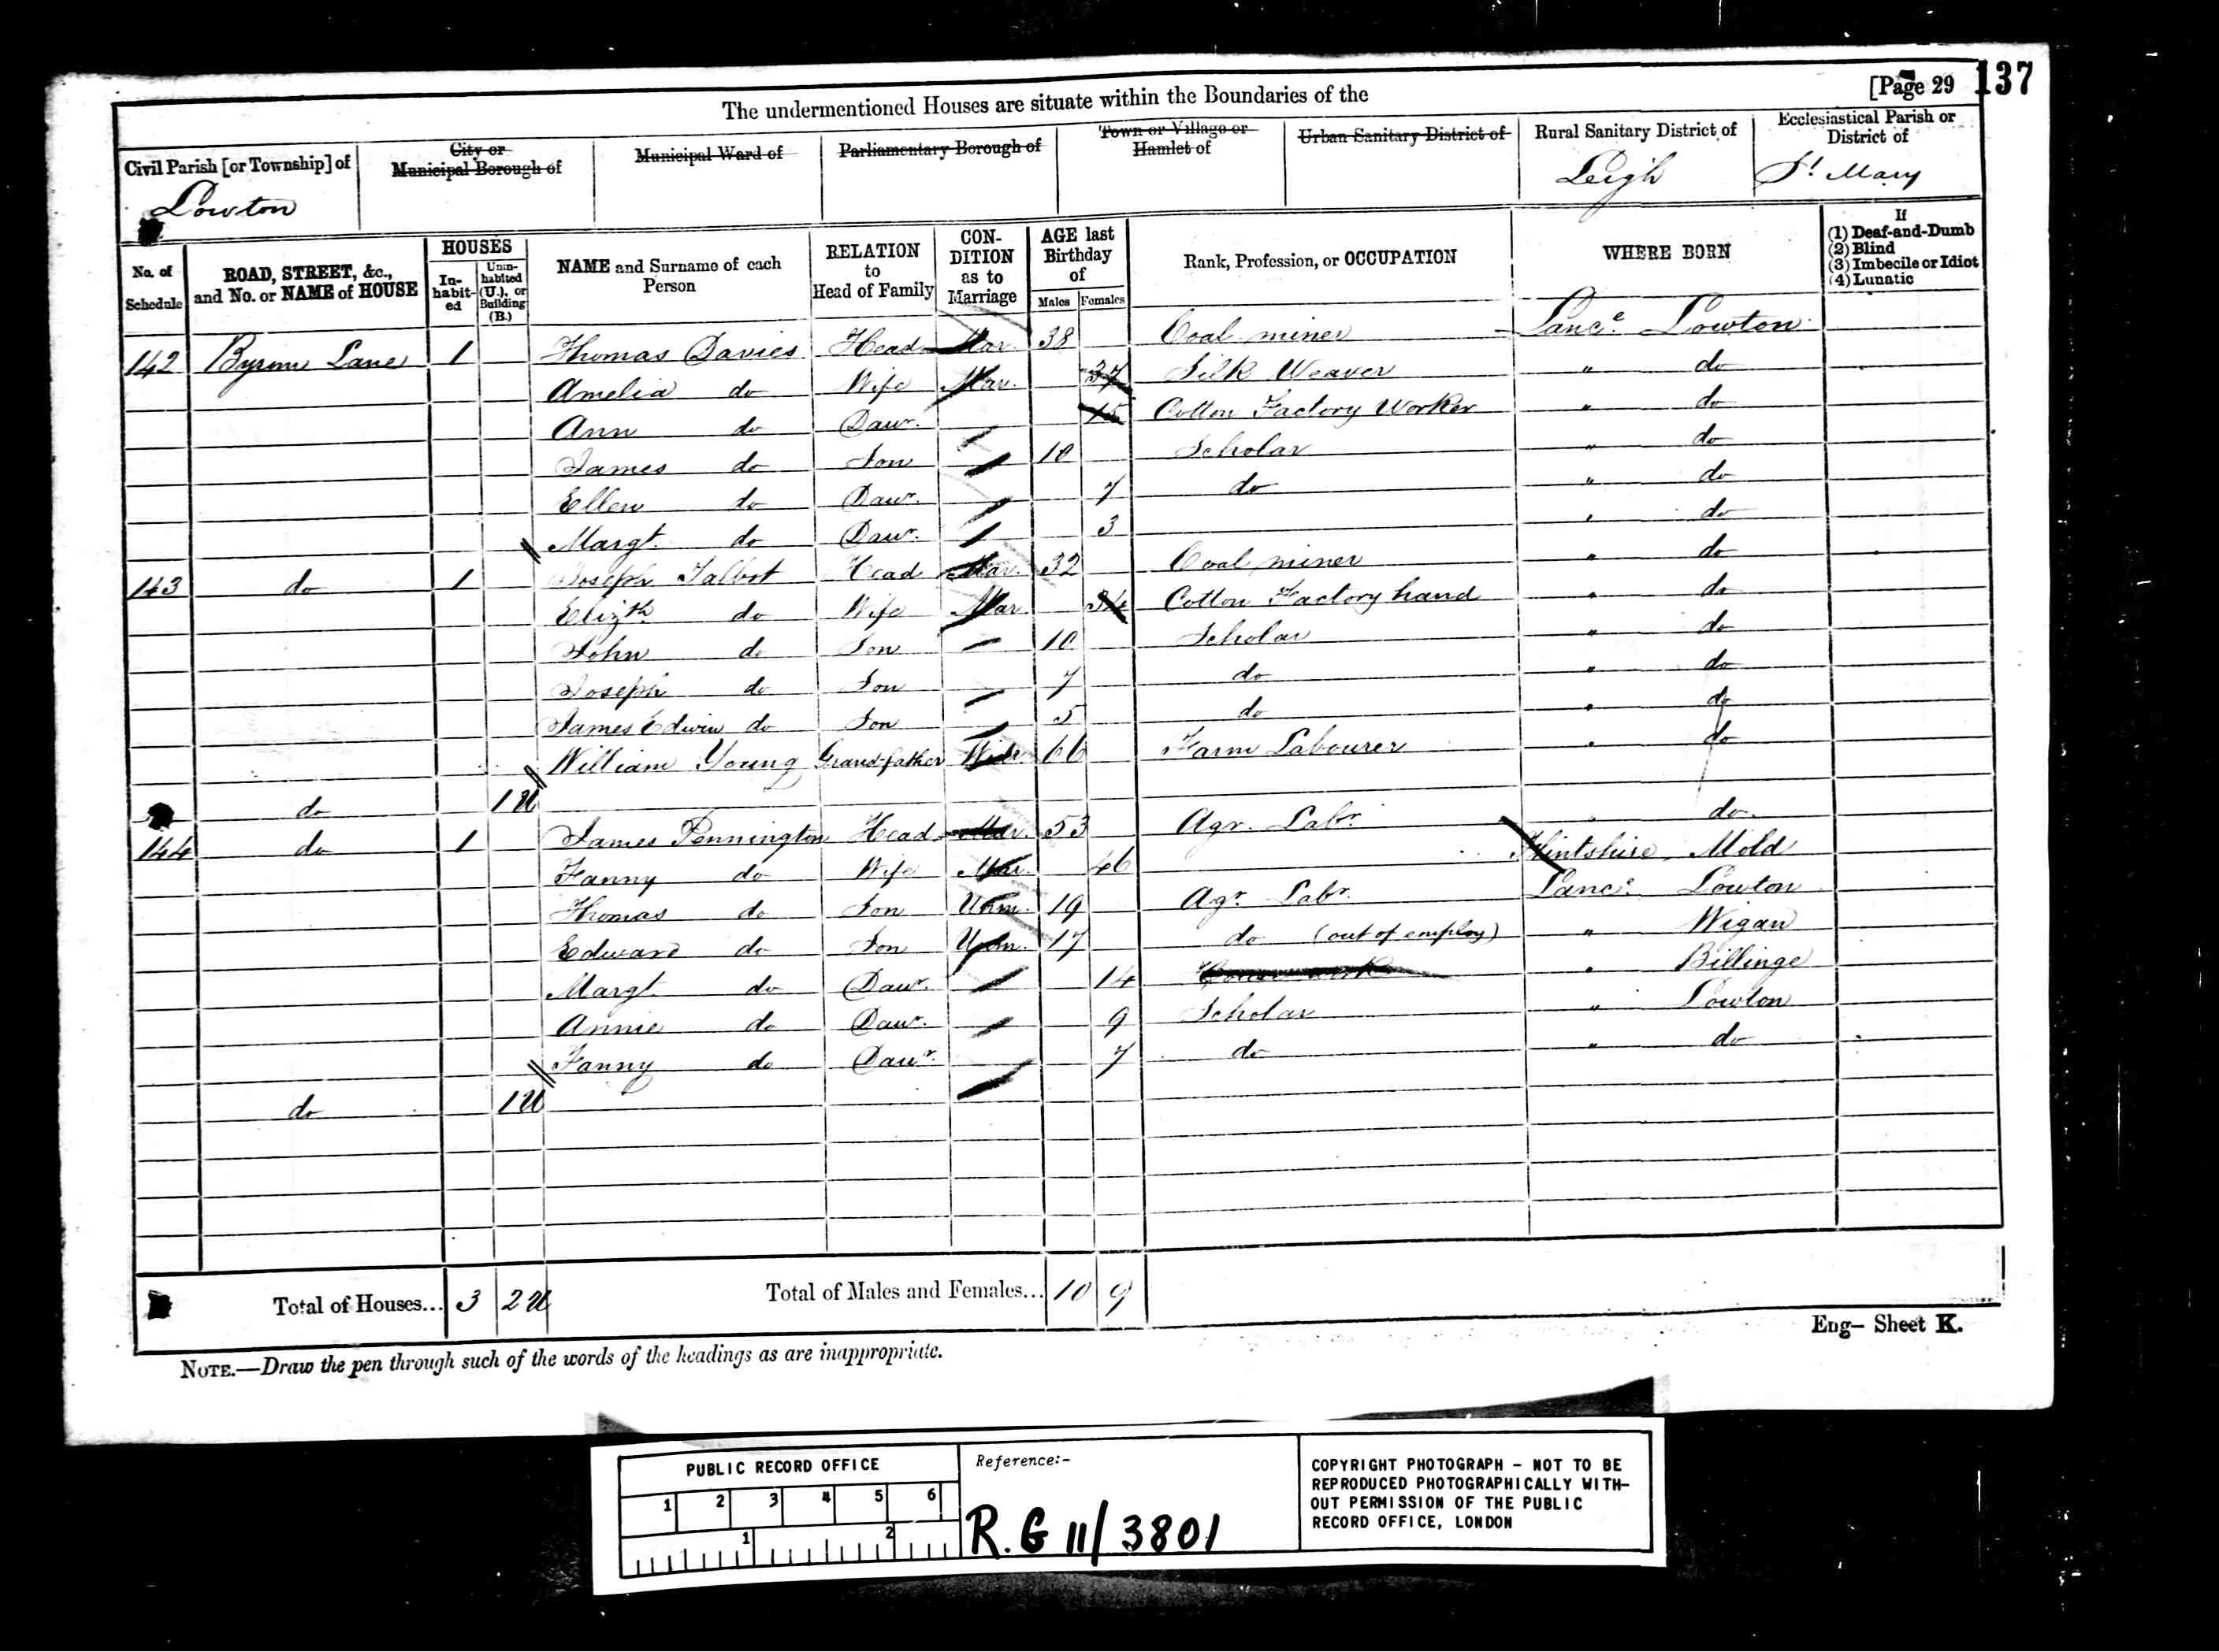 [Page 29 137
The undermentioned Houses are situate within the Boundaries of the
Civil Parish [or Township] of
Lowton
City or Municipal Borough of
Municipal Ward of
Parliamentary Borough of
Town or Village or Hamlet of
Urban Sanitary District of
Rural Sanitary District of
Leigh
Ecclesiastical Parish or District of
St. Mary
No. of Schedule
ROAD, STREET, &c., and No. or NAME of HOUSE
HOUSES
In-habit-ed
Unin-habited (U.), or Building (B.)
NAME and Surname of each Person
RELATION to Head of Family
CON-DITION as to Marriage
AGE last Birthday of
Males Females
Rank, Profession, or OCCUPATION
WHERE BORN
If
(1) Deaf-and-Dumb
(2) Blind
(3) Imbecile or Idiot
(4) Lunatic
142 Byrom Lane 1 Thomas Davies Head Mar. 38 Coal miner Lanc. Lowton
Amelia do Wife Mar. 37 Silk Weaver " do
Ann do Daur. 15 Cotton Factory Worker " do
James do Son 10 Scholar " do
Ellen do Daur. 7 do " do
Margt. do Daur. 3 " do
143 do 1 Joseph Talbot Head Mar. 32 Coal miner " do
Elizth. do Wife Mar. 34 Cotton Factory hand " do
John do Son 10 Scholar " do
Joseph do Son 7 do " do
James Edwin do Son 5 do " do
William Young Grandfather Widr. 66 Farm Labourer " do
do 1 U
144 do 1 James Pennington Head Mar. 53 Agr. Labr. " do
Fanny do Wife Mar. 46 Flintshire, Mold
Thomas do Son Unm. 19 Agr. Labr. Lanc. Lowton
Edward do Son Unm. 17 do (out of employ) " Wigan
Margt. do Daur. 14 " Billinge
Annie do Daur. 9 Scholar " Lowton
Fanny do Daur. 7 do " do
do 1 U
Total of Houses... 3 2 U Total of Males and Females... 10 9
Eng- Sheet K.
NOTE.—Draw the pen through such of the words of the headings as are inappropriate.
PUBLIC RECORD OFFICE
1 2 3 4 5 6
1 2
Reference:-
R.G 11/3801
COPYRIGHT PHOTOGRAPH - NOT TO BE
REPRODUCED PHOTOGRAPHICALLY WITH-
OUT PERMISSION OF THE PUBLIC
RECORD OFFICE, LONDON